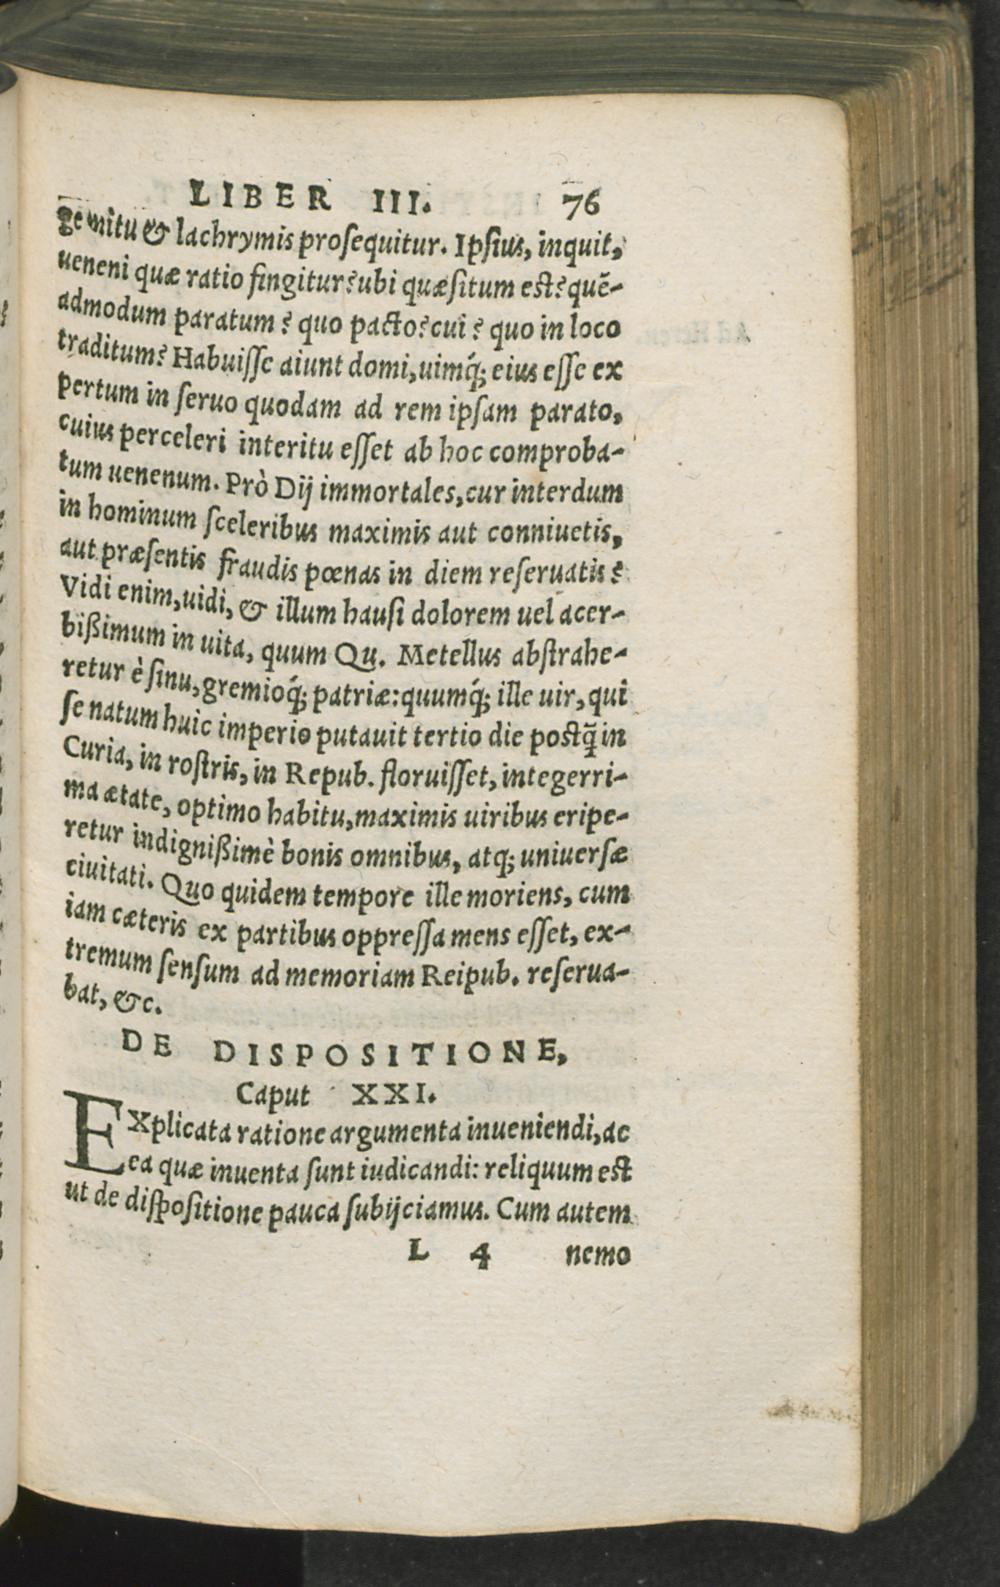 LIBER III. 76
gemitu & lachrymis prosequitur. Ipsius, inquit,
ueneni quæ ratio fingitur? ubi quæsitum est? quē-
admodum paratum? quo pacto? cui? quo in loco
traditum? Habuisse aiunt domi, uimq́; eius esse ex
pertum in seruo quodam ad rem ipsam parato,
cuius perceleri interitu esset ab hoc comproba-
tum uenenum. Prò Dij immortales, cur interdum
in hominum sceleribus maximis aut conniuetis,
aut præsentis fraudis pœnas in diem reseruatis?
Vidi enim, uidi, & illum hausi dolorem uel acer-
bißimum in uita, quum Qu. Metellus abstrahe-
retur è sinu, gremioq́; patriæ: quumq́; ille uir, qui
se natum huic imperio putauit tertio die postq̃ in
Curia, in rostris, in Repub. floruisset, integerri-
ma ætate, optimo habitu, maximis uiribus eripe-
retur indignißimè bonis omnibus, atq; uniuersæ
ciuitati. Quo quidem tempore ille moriens, cum
iam cæteris ex partibus oppressa mens esset, ex-
tremum sensum ad memoriam Reipub. reserua-
bat, &c.
DE DISPOSITIONE,
Caput XXI.
EXplicata ratione argumenta inueniendi, ac
ea quæ inuenta sunt iudicandi: reliquum est
ut de dispositione pauca subijciamus. Cum autem
L 4 nemo